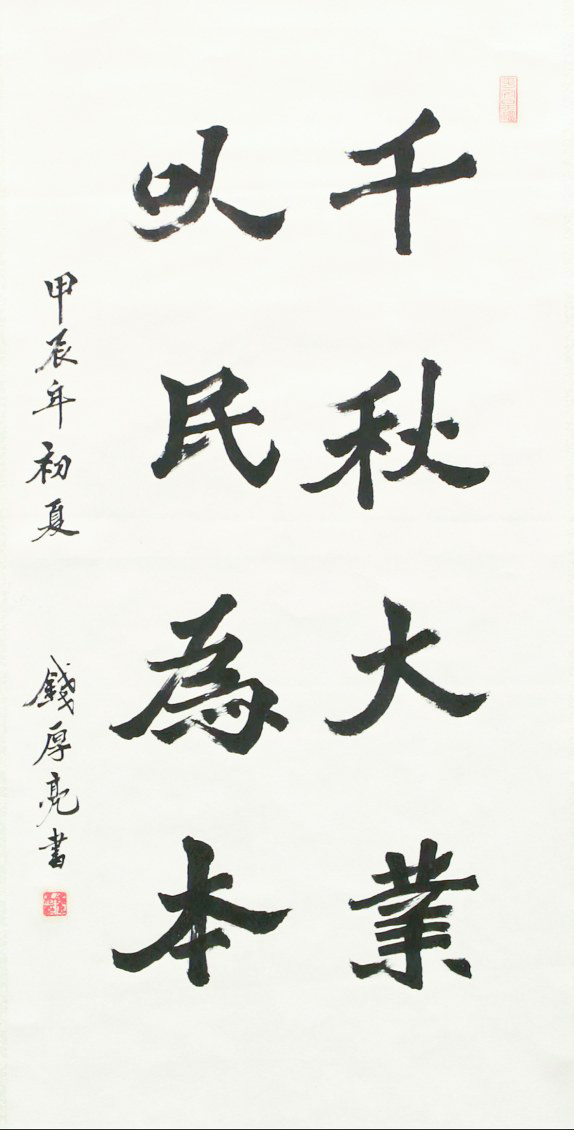 千秋大業
以民為本
甲辰年初夏
錢厚亮書